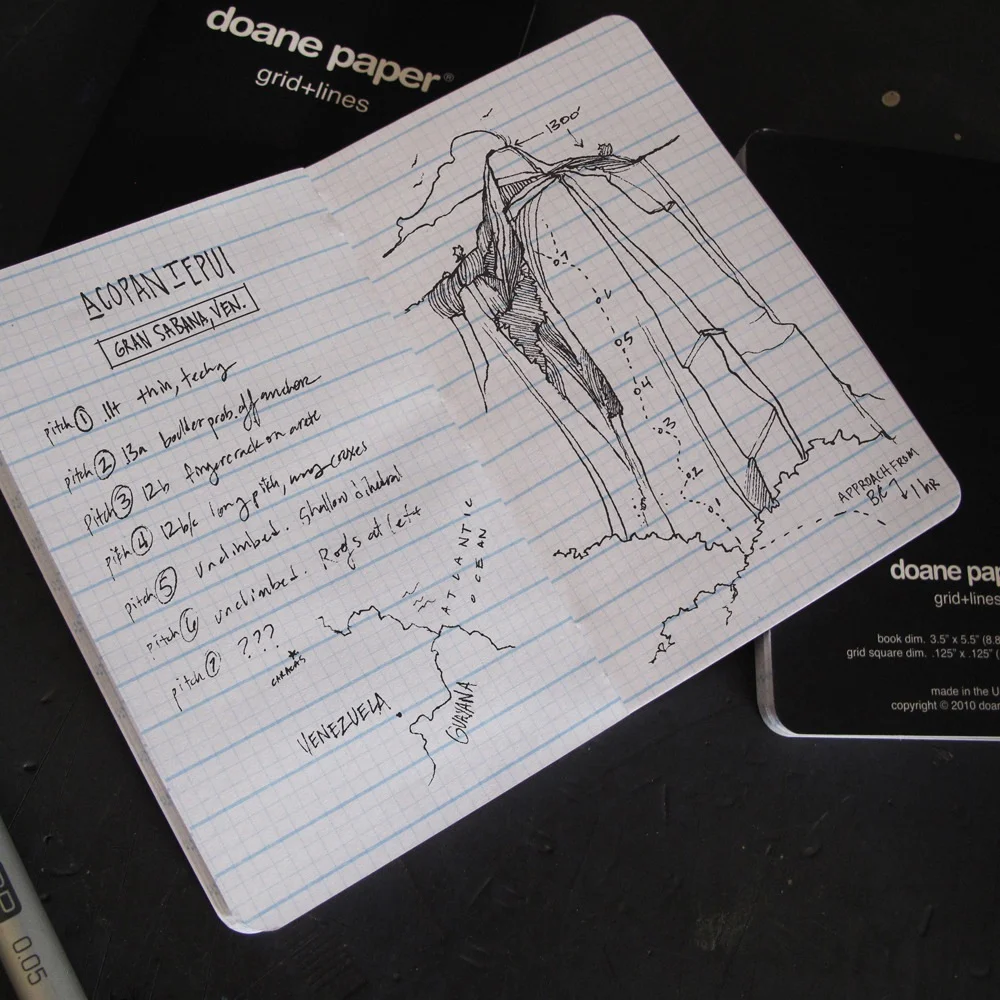 doane paper®
grid+lines
ACOPAN TEPUI
GRAN SABANA, VEN.
pitch 1 .11+ thin, techy
pitch 2 .13a boulder prob. off anchors
pitch 3 12b fingercrack on arete
pitch 4 12b/c long pitch, many cruxes
pitch 5 unclimbed. Shallow dihedral
pitch 6 unclimbed. Roofs out left
pitch 7 ???
ATLANTIC
OCEAN
CARACAS
VENEZUELA
GUAYANA
1300'
07
05
04
03
02
01
APPROACH FROM
1 hr
doane pap
grid+lines
book dim. 3.5" x 5.5" (8.8
grid square dim. .125" x .125" (
made in the U
copyright © 2010 doan
0.05